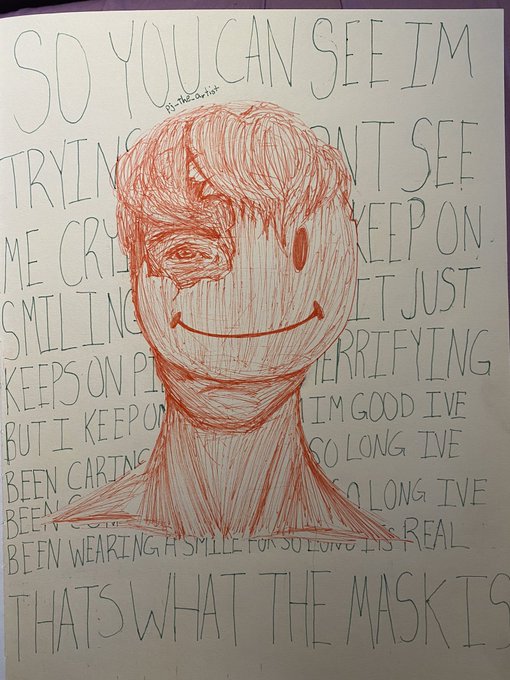 SO YOU CAN SEE IM
pj_the_artist
TRYING ONT SEE
ME CRY KEEP ON
SMILING IT JUST
KEEPS ON PI ERRIFYING
BUT I KEEP ON IM GOOD IVE
BEEN CARING SO LONG IVE
BEEN SO LONG IVE
BEEN WEARING A SMILE FOR SO LONG ITS REAL
THATS WHAT THE MASK IS